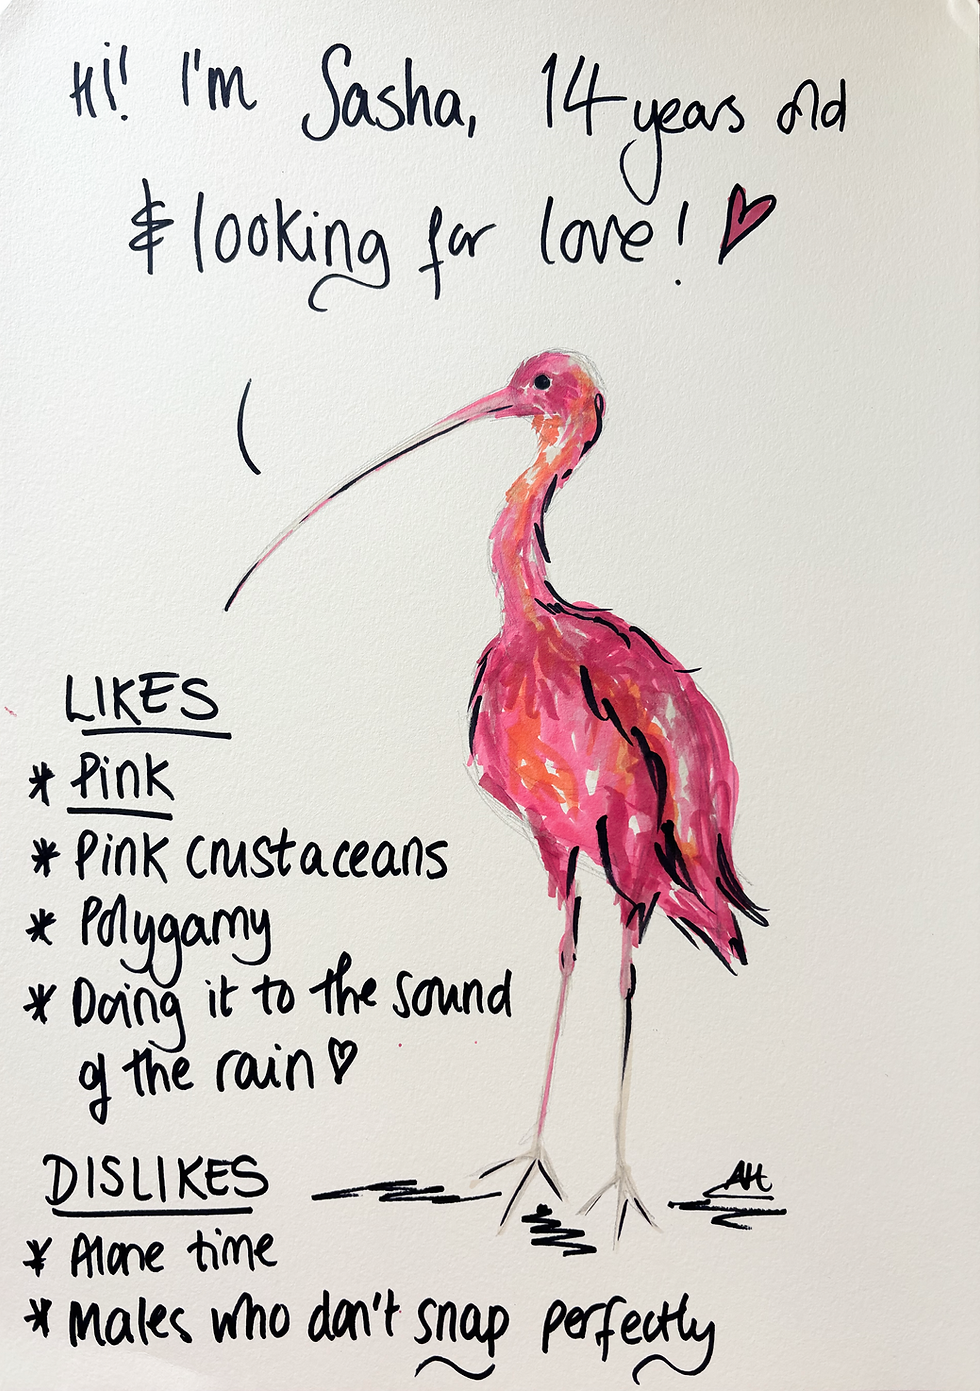 Hi! I'm Sasha, 14 years old
& looking for love! ♥
LIKES
* Pink
* Pink crustaceans
* Polygamy
* Doing it to the sound
of the rain ♡
DISLIKES
AH
* Alone time
* Males who don't snap perfectly